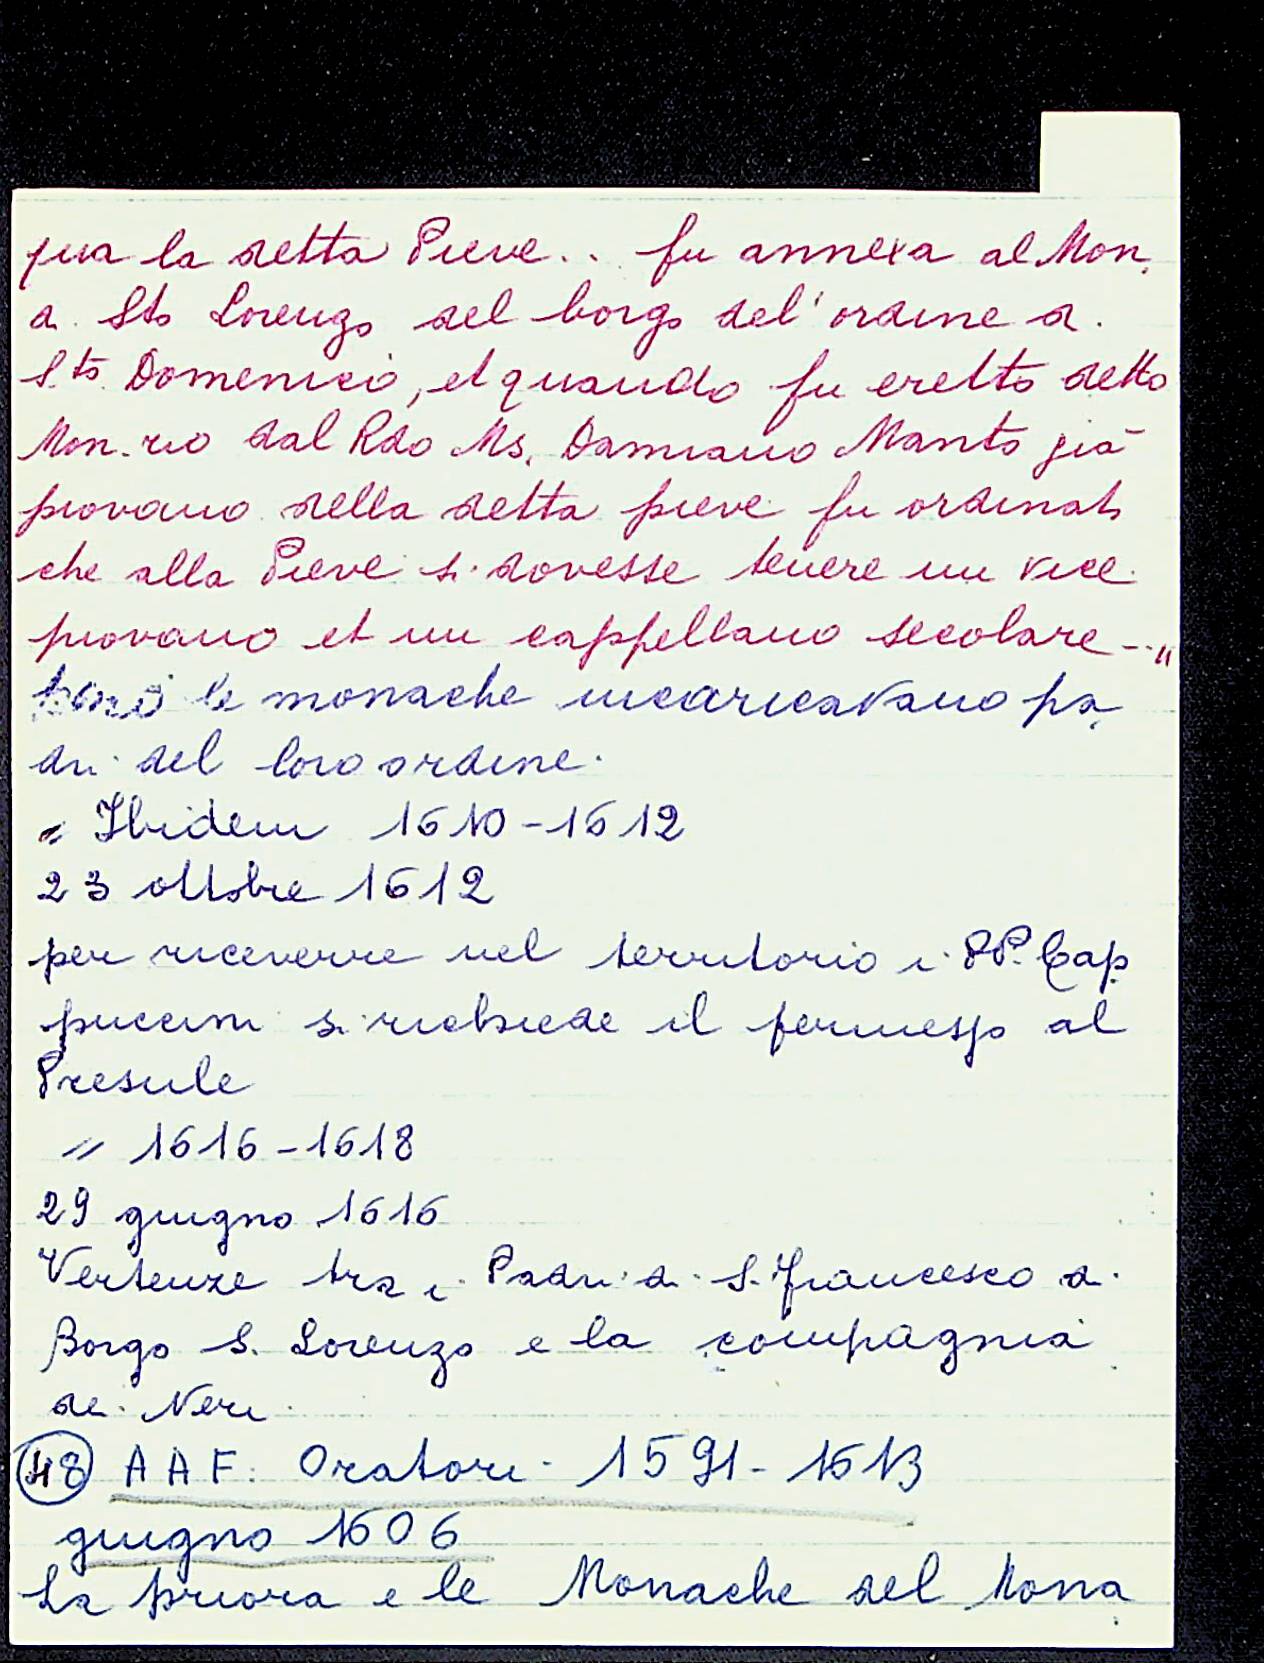 qua la detta Pieve.. fu annexa al Mon.
di Sto Lorenzo del borgo del' ordine di
Sto Domenico, et quando fu eretto detto
Mon.rio dal Rdo Ms. Damiano Manto già
piovano della detta pieve fu ordinato
che alla Pieve si dovesse tenere un vice
piovano et un cappellano secolare --"
però le monache incaricavano pa
dri del loro ordine.
" Ibidem 1610-1612
23 ottobre 1612
per riceverre nel territorio i PP. Cap
puccini si richiede il permesso al
Presule
" 1616-1618
29 giugno 1616
Vertenze tra i Padri di S. Francesco di
Borgo S. Lorenzo e la compagnia
dei Neri
48 AAF. Oratori 1591-1613
giugno 1606
La priora e le Monache del Mona